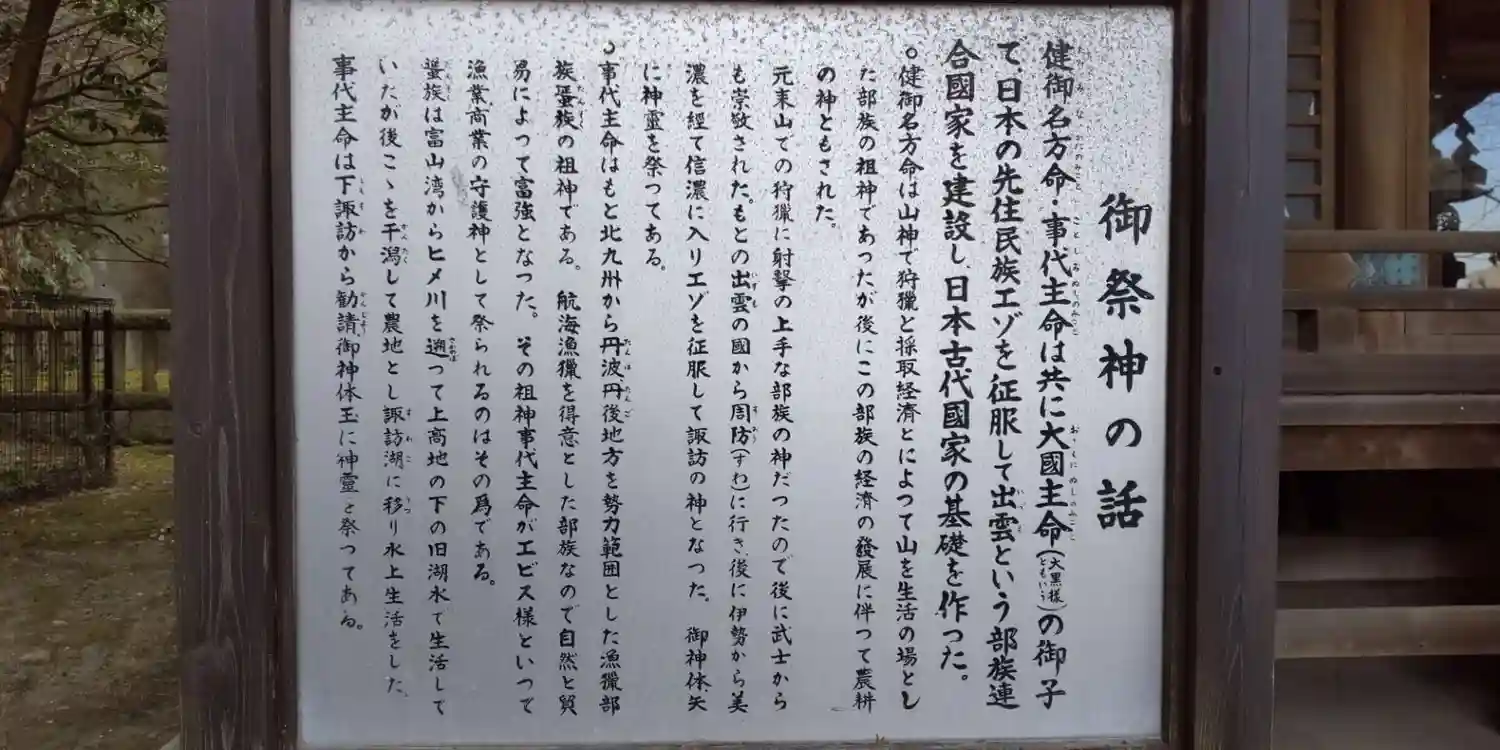 御祭神の話
健御名方命・事代主命は共に大國主命(大黒様ともいう)の御子
て日本の先住民族エゾを征服して出雲という部族連
合國家を建設し、日本古代國家の基礎を作った。
○健御名方命は山神で狩獵と採取経済とによつて山を生活の場とし
た部族の祖神であったが後にこの部族の経済の發展に伴つて農耕
の神ともされた。
元来山での狩獵に射撃の上手な部族の神だったので後に武士から
も崇敬された。もとの出雲の國から周防(すわ)に行き、後に伊勢から美
濃を経て信濃に入りエゾを征服して諏訪の神となつた。 御神体、矢
に神靈を祭つてある。
○事代主命はもと北九州から丹波、丹後地方を勢力範囲とした漁獵部
族蜑族の祖神である。 航海漁獵を得意とした部族なので自然と貿
易によって富強となつた。その祖神事代主命がエビス様といつて
漁業、商業の守護神として祭られるのはその爲である。
蜑族は富山湾からヒメ川を遡つて上高地の下の旧湖水で生活して
いたが後こゝを干潟して農地とし諏訪湖に移り水上生活をした。
事代主命は下諏訪から勧請、御神体玉に神靈を祭つてある。